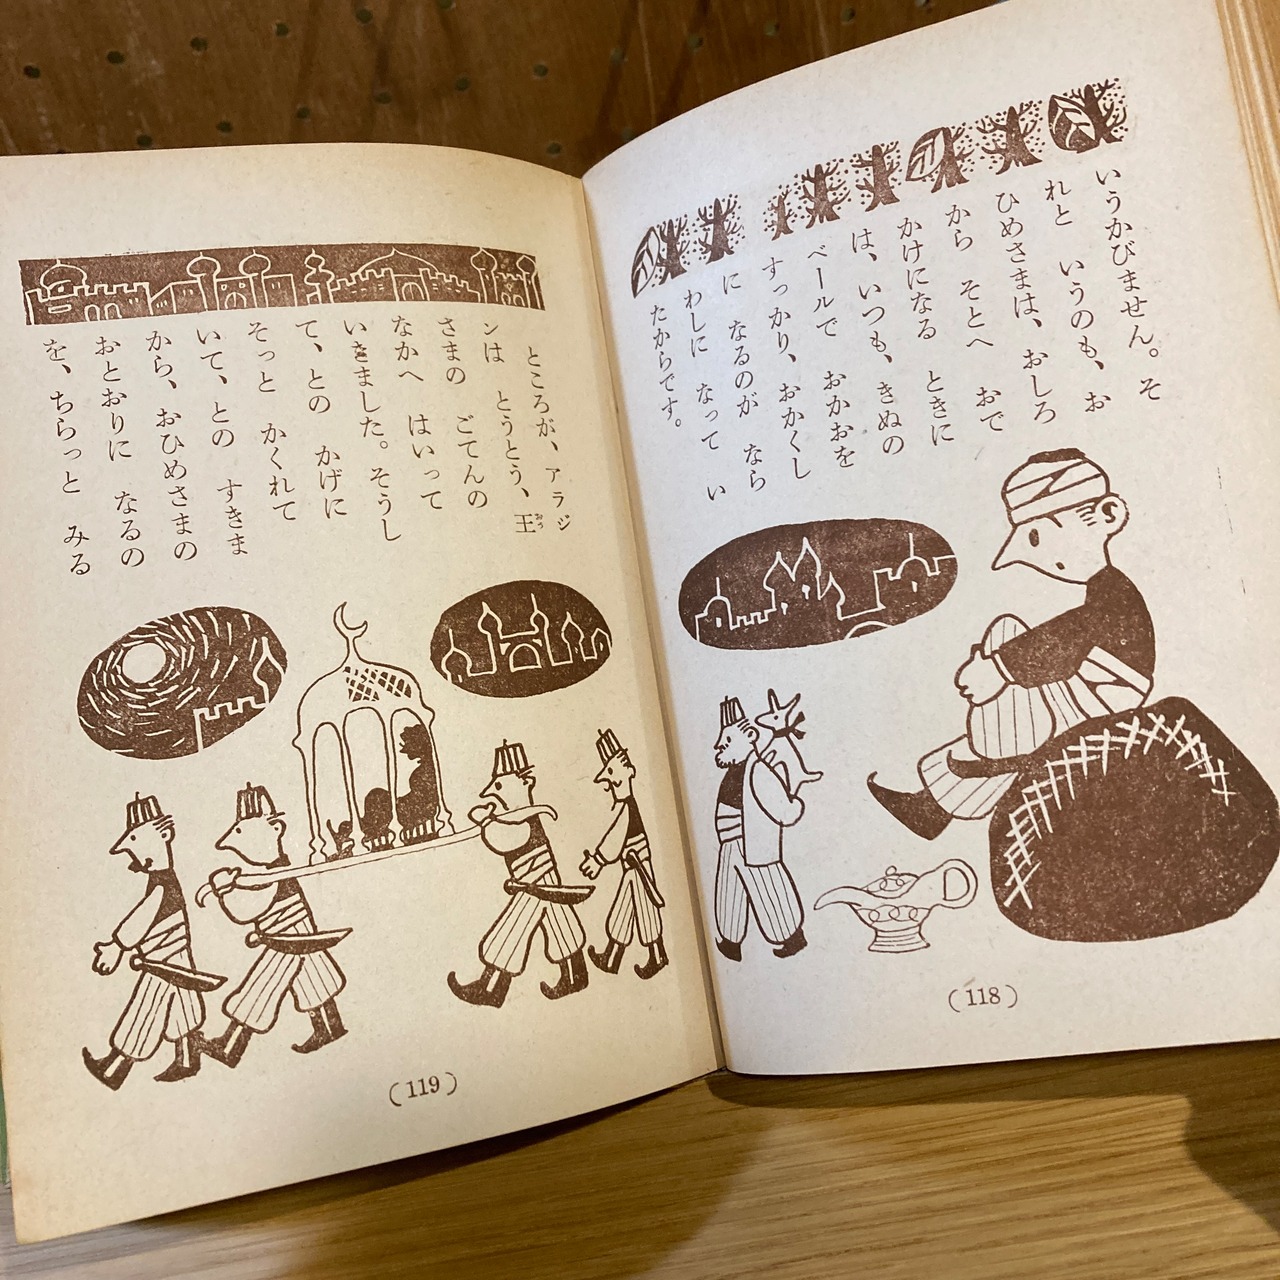 いうかびません。そ
れと　いうのも、お
ひめさまは、おしろ
から　そとへ　おで
かけになる　ときに
は、いつも、きぬの
ベールで　おかおを
すっかり、おかくし
に　なるのが　なら
わしに　なって　い
たからです。
(118)
ところが、アラジ
ンは　とうとう、王
おう
さまの　ごてんの
なかへ　はいって
いきました。そうし
て、との　かげに
そっと　かくれて
いて、との　すきま
から、おひめさまの
おとおりに　なるの
を、ちらっと　みる
(119)